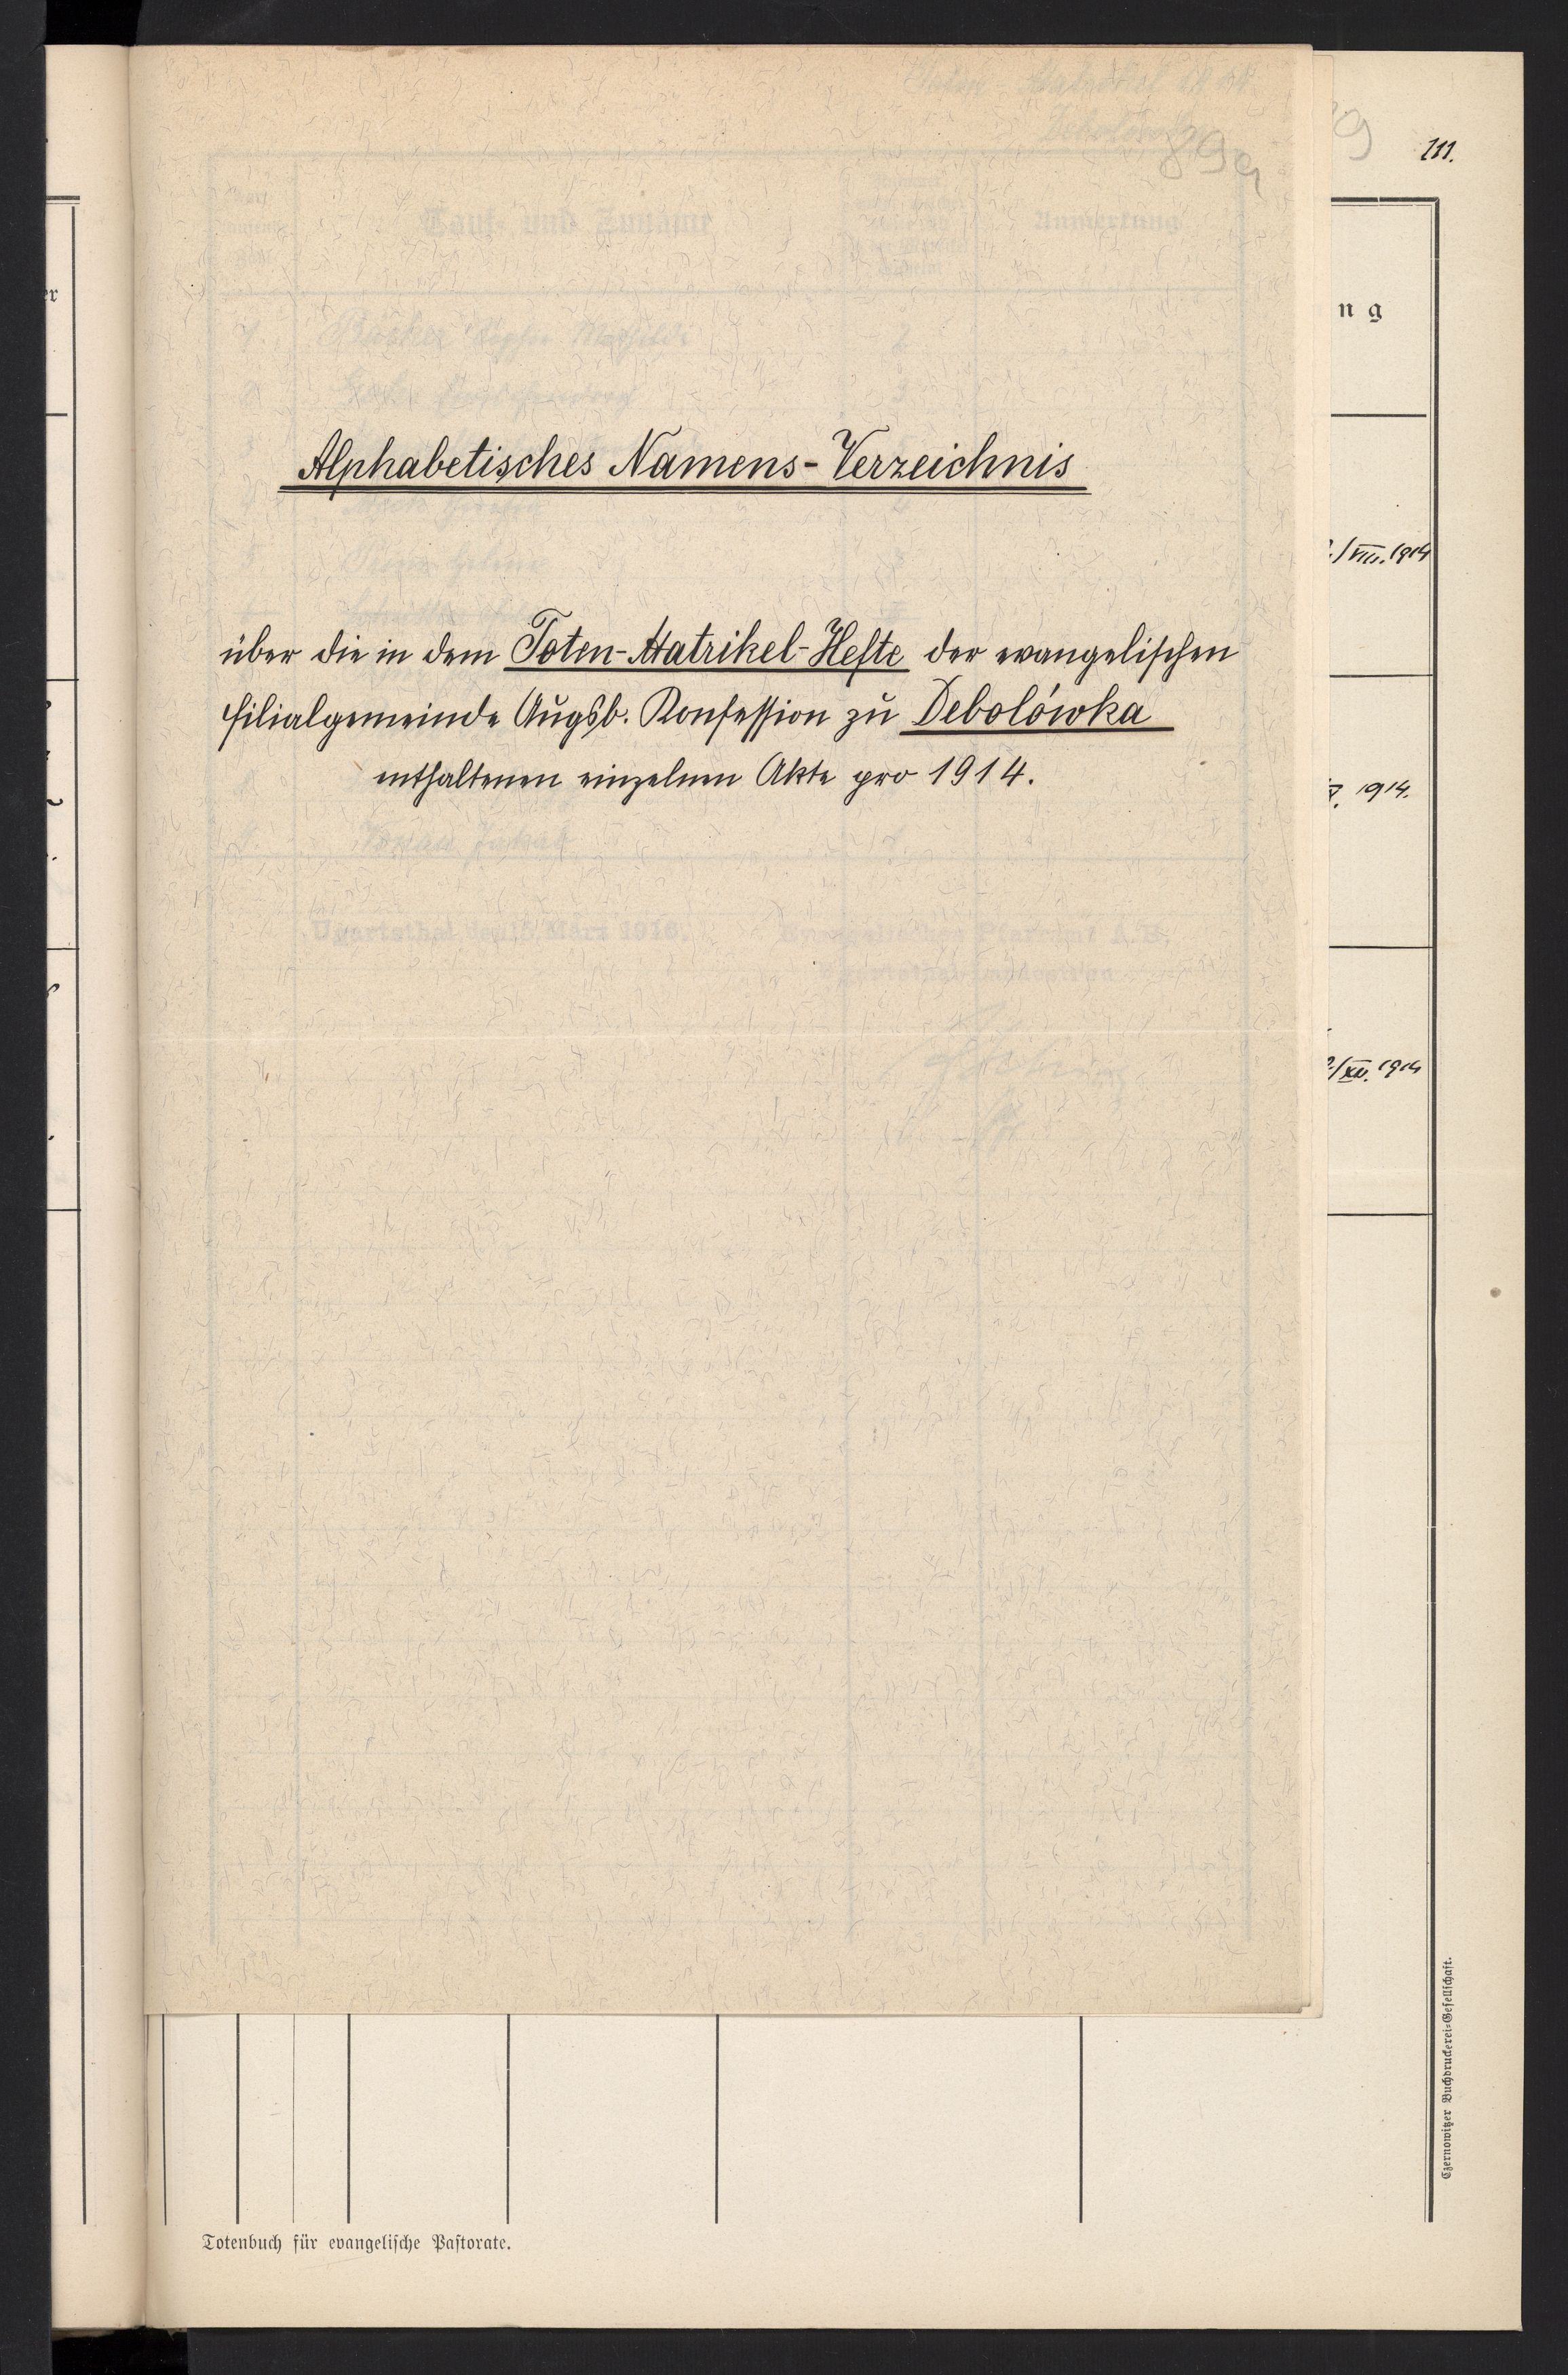 89a
111.
ng
Alphabetisches Namens-Verzeichnis
/VIII. 1914
über die in dem Toten-Matrikel-Hefte der evangelischen
Filialgemeinde Augsb. Konfession zu Debolówka
enthaltenen einzelnen Akte pro 1914.
1914.
/XII. 1914
Totenbuch für evangelische Pastorate.
Czernowitzer Buchdruckerei-Gesellschaft.